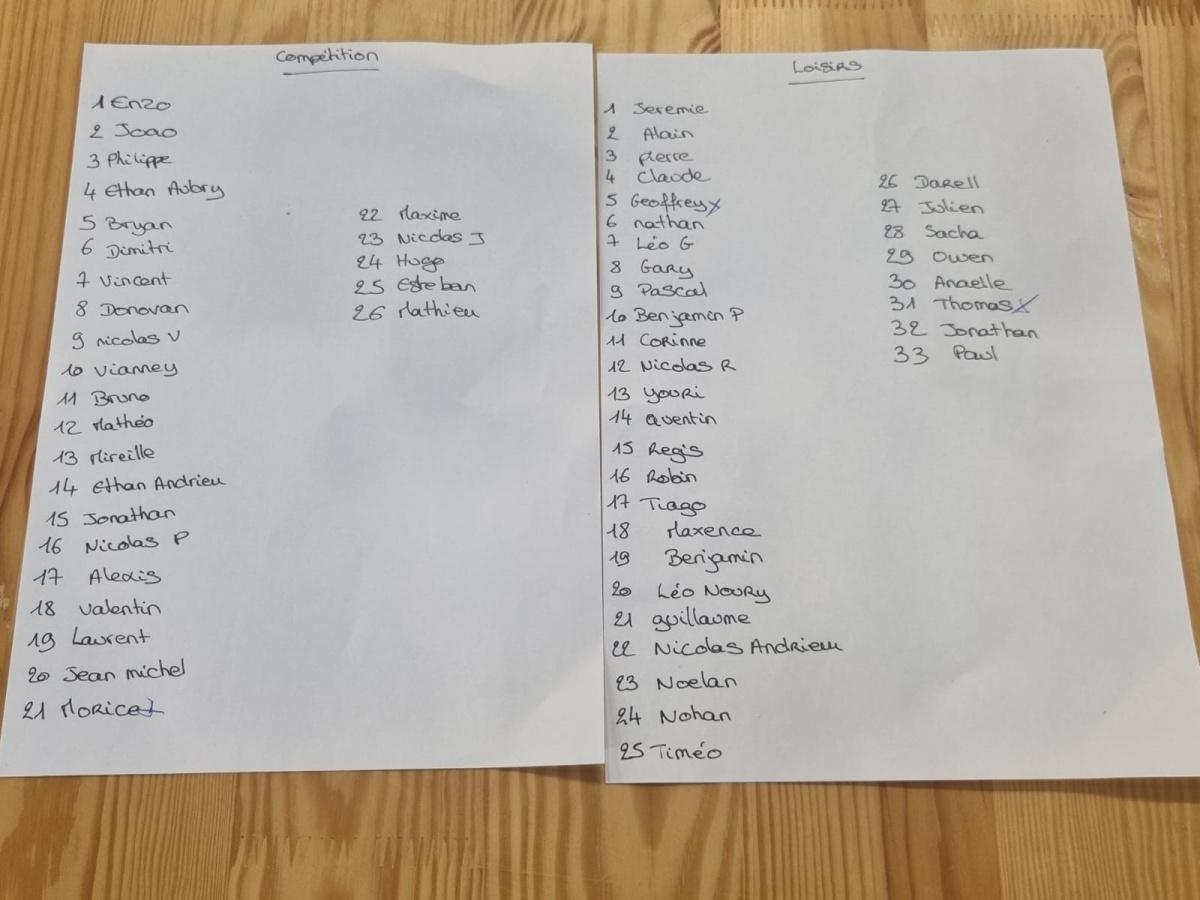 Compétition
1 Enzo
2 Joao
3 Philippe
4 Ethan Aubry
5 Bryan
6 Dimitri
7 Vincent
8 Donovan
9 nicolas V
10 Vianney
11 Bruno
12 Mathéo
13 Mireille
14 Ethan Andrieu
15 Jonathan
16 Nicolas P
17 Alexis
18 Valentin
19 Laurent
20 Jean michel
21 Morice
22 Maxime
23 Nicolas J
24 Hugo
25 Esteban
26 Mathieu
Loisirs
1 Jeremie
2 Alain
3 pierre
4 Claude
5 Geoffrey x
6 nathan
7 Léo G
8 Gary
9 Pascal
10 Benjamin P
11 Corinne
12 Nicolas R
13 youri
14 Quentin
15 Regis
16 Robin
17 Tiago
18 Maxence
19 Benjamin
20 Léo Noury
21 guillaume
22 Nicolas Andrieu
23 Noelan
24 Nohan
25 Timéo
26 Darell
27 Julien
28 Sacha
29 Owen
30 Anaelle
31 Thomas x
32 Jonathan
33 Paul